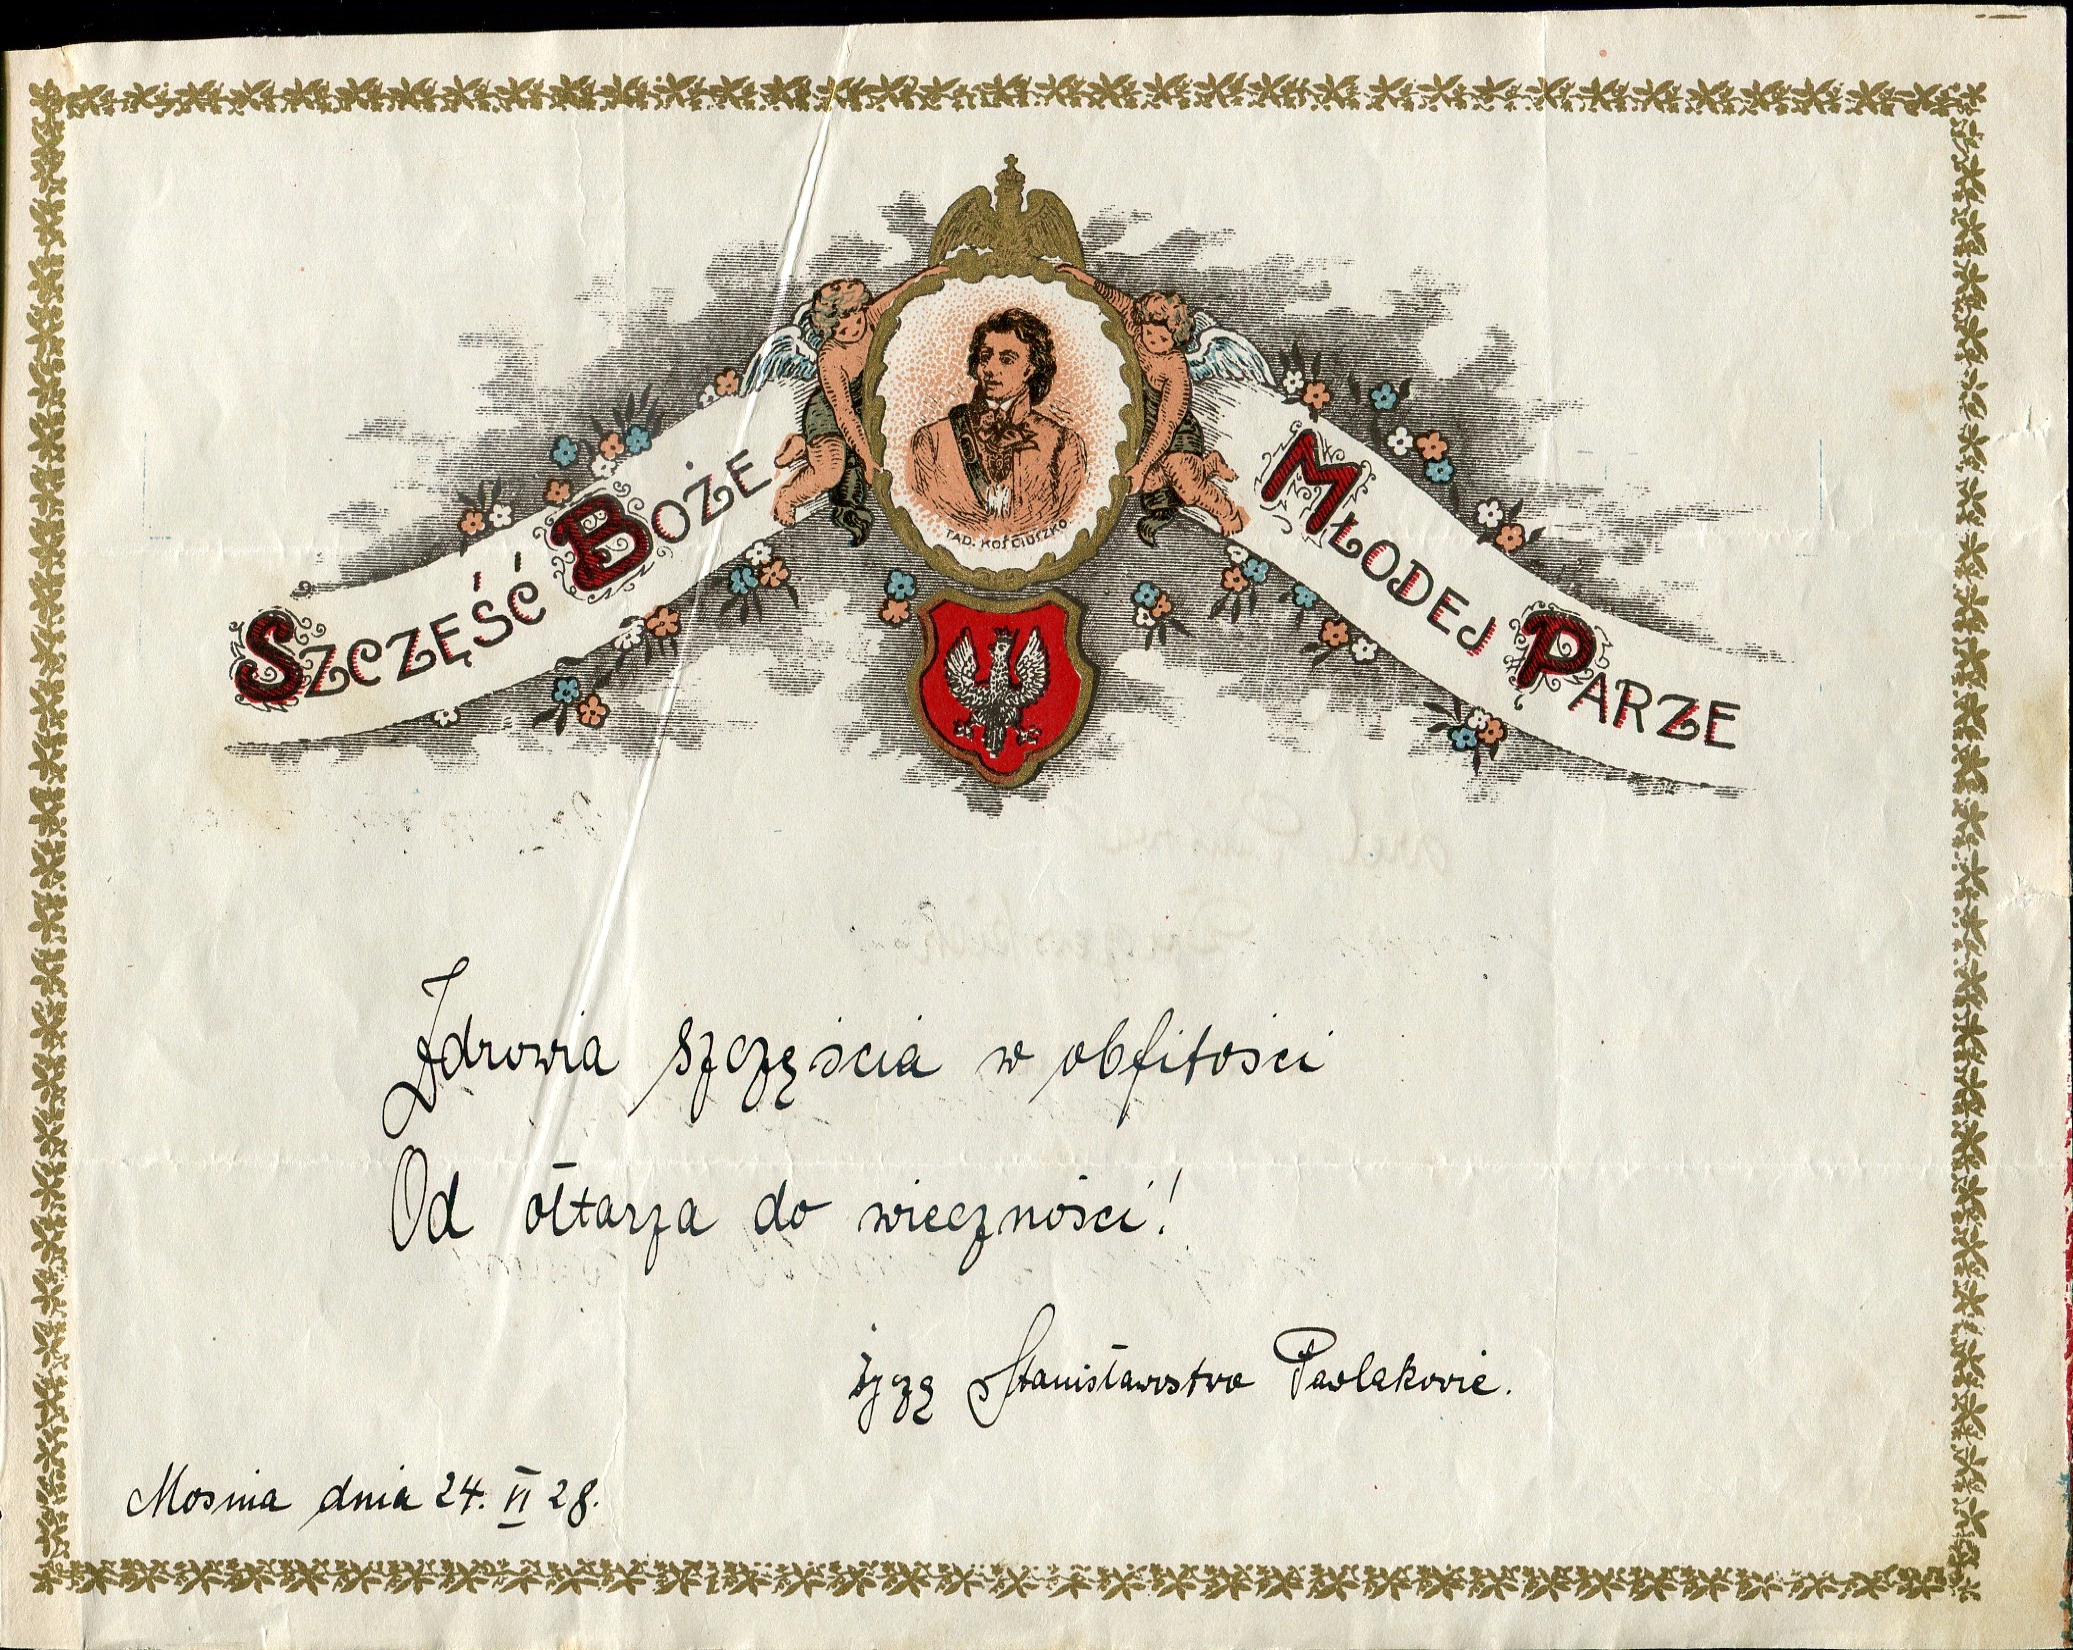 Szczęść Boże
Młodej Parze
TAD. KOŚCIUSZKO
Zdrowia szczęścia w obfitości
Od ołtarza do wieczności!
życzą Stanisławostwo Pawlakowie.
Mosina dnia 24. VI 28.